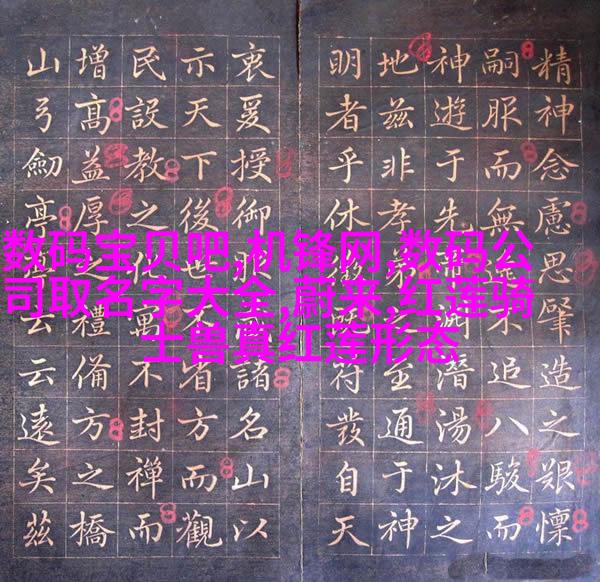 精神念慮思肇造之艱懍
嗣服而無不追八駿而
神遊于先帝淵潛湯沐之
地茲非孝弟之至通于神
明者乎休符發自天
衷爰授御諸名山以
示天下後世不省方而觀
民設教之化不封禪而
增高益厚之禮備方之橋
山弓劍亭云云遠矣茲
数码宝贝吧,机锋网,数码公
司取名字大全,蔚来,红莲骑
士兽真红莲形态